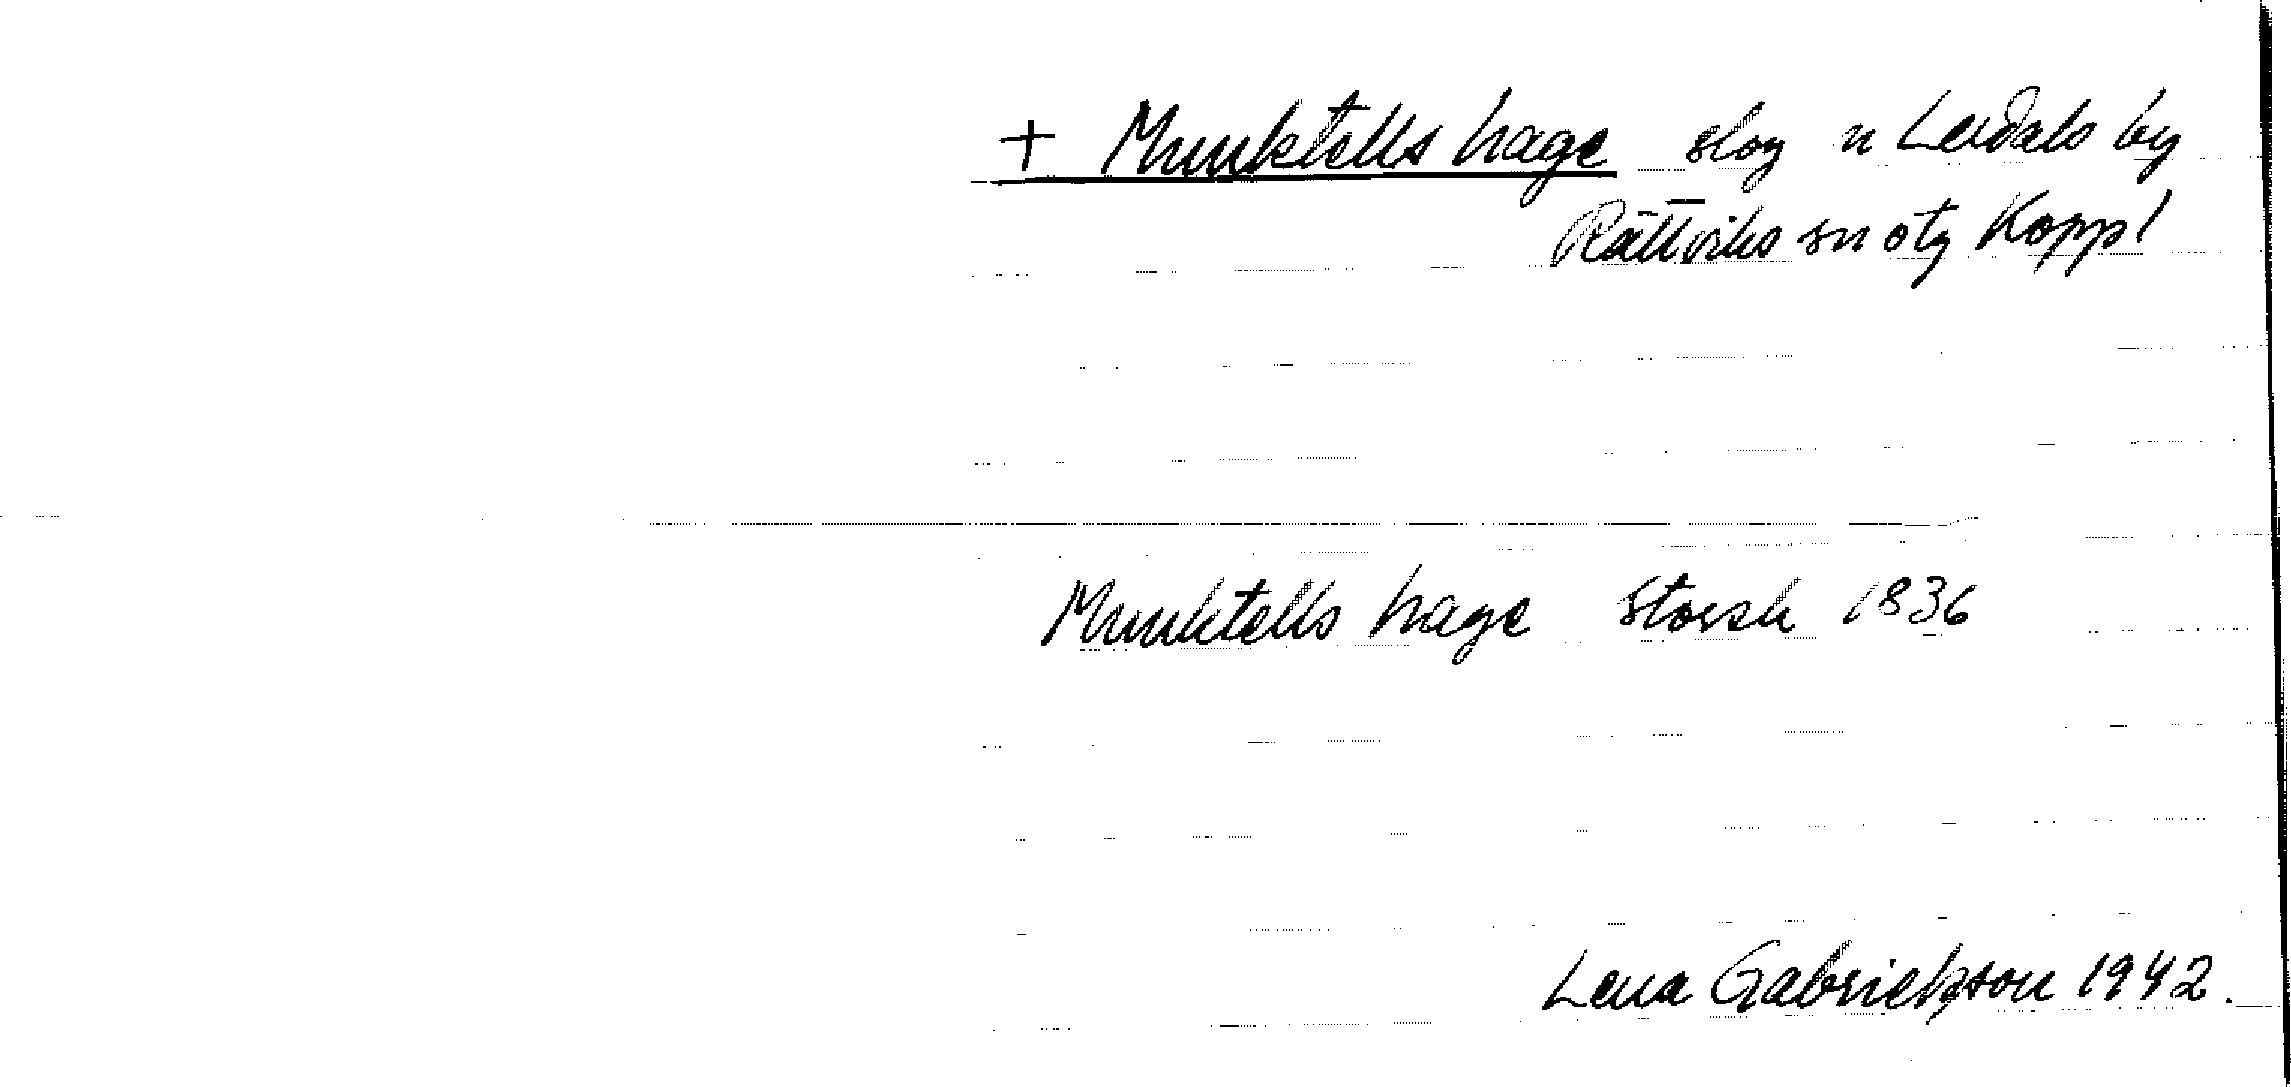 + Munktells hage slog n Lerdals by
Rättviks sn otg Koppl
Munktells hage Storsk 1836
Lena Gabrielsson 1942.